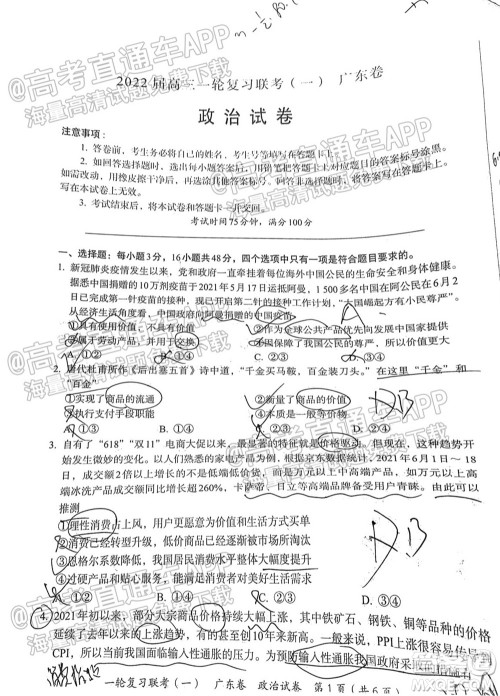 @高考直通车APP
海量高清试题免费下载
2022届高三一轮复习联考（一） 广东卷
政治试卷
注意事项：
1. 答卷前，考生务必将自己的姓名、考生号等填写在答题卡上。
2. 如回答选择题时，选出每小题答案后，用铅笔把答题卡上对应题目的答案标号涂黑。
如需改动，用橡皮擦干净后，再选涂其他答案标号。回答非选择题时，将答案写在答题卡上。
写在本试卷上无效。
3. 考试结束后，将本试卷和答题卡一并交回。
考试时间75分钟，满分100分
一、选择题：每小题3分，16小题共48分，四个选项中只有一项是符合题目要求的。
1. 新冠肺炎疫情发生以来，党和政府一直牵挂着每位海外中国公民的生命安全和身体健康。
据悉中国捐赠的10万剂疫苗于2021年5月17日运抵阿曼，1 500多名中国在阿公民在6月2
日已完成第一针疫苗的接种，现已开启第二针的接种工作计划，“大国崛起方有小民尊严”。
从经济生活角度看，中国政府向阿曼捐赠的中国疫苗
①具有使用价值，不具有价值 ②作为全球公共产品优于其他国家产品
③属于劳动产品，并用于交换 ④因保障了我国公民的尊严，所以有价值
A. ①② B. ①③ C. ②④ D. ③④
2. 唐代杜甫所作《后出塞五首》诗中道，“千金买马鞍，百金装刀头。”在这里“千金”和
“百金”
①实现了商品的流通 ②衡量了商品的价值
③执行支付手段职能 ④本质是一般等价物
A. ①③ B. ①④ C. ②③ D. ②④
D B
3. 自有了“618”“双11”电商大促以来，最显著的特征就是价格驱动。但现在，这种趋势开
始发生微妙的变化。以人们熟悉的家电产品为例，根据京东数据统计，2021年6月1日～18
日，成交额2倍以上增长的不是低端低价货，而是万元以上中高端产品，如万元以上高
端冰洗产品成交额同比增长超260%，卡萨帝、日立等高端品牌备受用户青睐。由此可以
推测
①理性消费占上风，用户更愿意为价值和生活方式买单
②消费已经转型升级，低价商品已经逐渐被市场所淘汰
③恩格尔系数降低，我国居民消费水平整体大幅度提升
④硬件产品和贴心服务，能满足高端消费者对美好生活需求
A. ①② B. ①④ C. ②③ D. ③④
D B
4. 2021年初以来，部分大宗商品价格持续大幅上涨，其中铁矿石、钢铁、铜等品种的价格
延续了去年以来的上涨趋势，有的甚至创10年来新高。一般来说，PPI上涨很容易传导
CPI，所以当前我国面临输入性通胀的压力。为预防输入性通胀我国政府采
一轮复习联考（一） 广东卷 政治试卷 第1页（共6页）